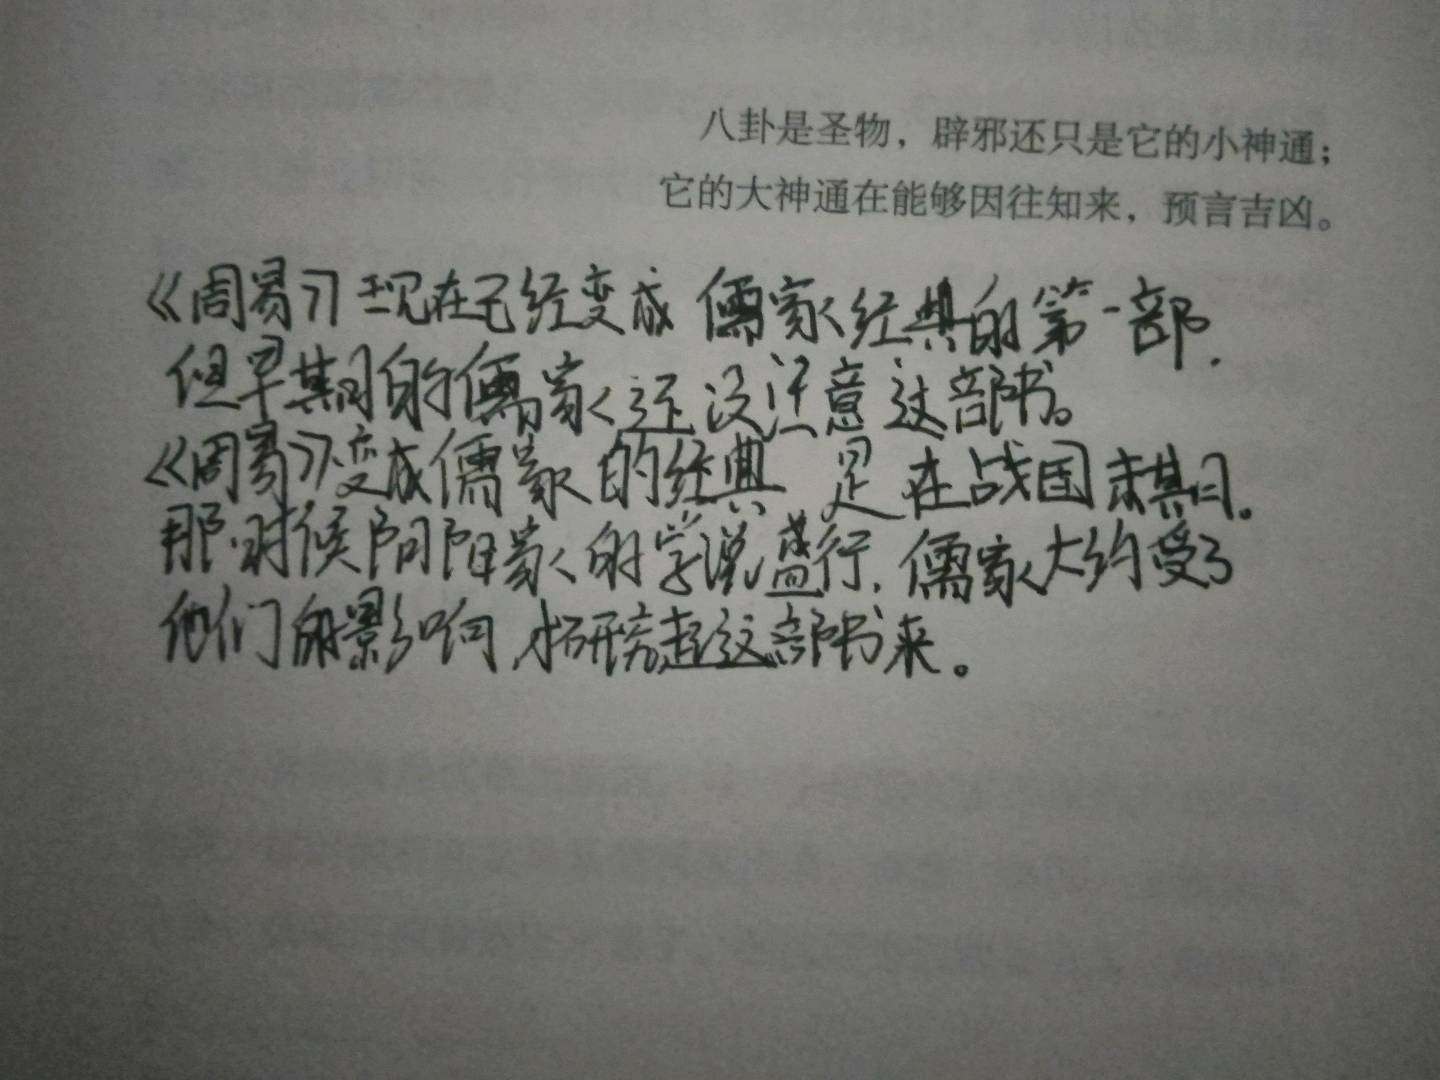 八卦是圣物，辟邪还只是它的小神通；
它的大神通在能够因往知来，预言吉凶。
《周易》现在已经变成儒家经典的第一部，
但早期的儒家还没注意这部书。
《周易》变成儒家的经典是在战国末期。
那时候阴阳家的学说盛行，儒家大约受了
他们的影响，才研究起这部书来。